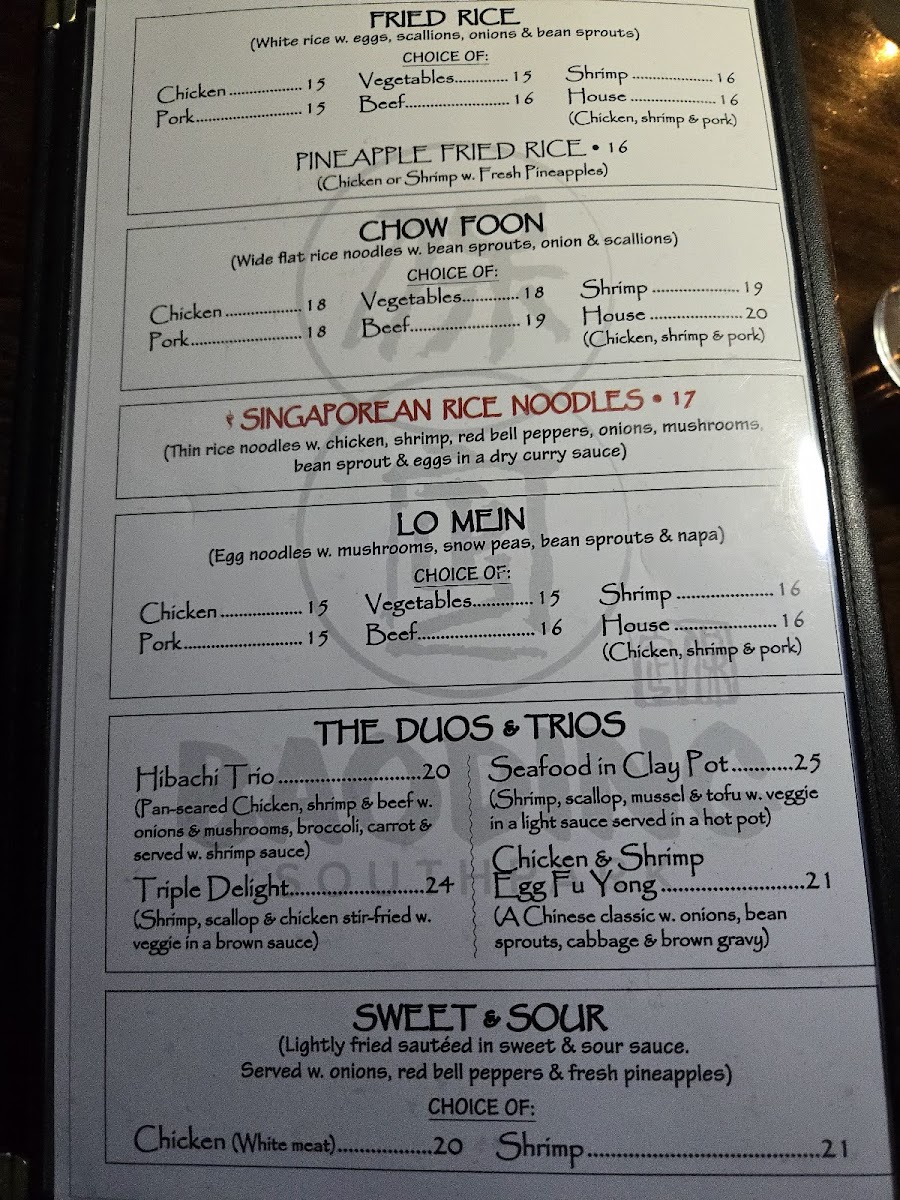 FRIED RICE
(White rice w. eggs, scallions, onions & bean sprouts)
CHOICE OF:
Chicken.................. 15 Vegetables............. 15 Shrimp .................... 16
Pork.......................... 15 Beef.......................... 16 House ..................... 16
(Chicken, shrimp & pork)
PINEAPPLE FRIED RICE • 16
(Chicken or Shrimp w. Fresh Pineapples)
CHOW FOON
(Wide flat rice noodles w. bean sprouts, onion & scallions)
CHOICE OF:
Chicken.................. 18 Vegetables............. 18 Shrimp .................... 19
Pork.......................... 18 Beef.......................... 19 House ......................20
(Chicken, shrimp & pork)
SINGAPOREAN RICE NOODLES • 17
(Thin rice noodles w. chicken, shrimp, red bell peppers, onions, mushrooms,
bean sprout & eggs in a dry curry sauce)
LO MEIN
(Egg noodles w. mushrooms, snow peas, bean sprouts & napa)
CHOICE OF:
Chicken.................. 15 Vegetables............. 15 Shrimp .................... 16
Pork.......................... 15 Beef.......................... 16 House ...................... 16
(Chicken, shrimp & pork)
THE DUOS & TRIOS
Hibachi Trio............................20
(Pan-seared Chicken, shrimp & beef w.
onions & mushrooms, broccoli, carrot &
served w. shrimp sauce)
Triple Delight...........................24
(Shrimp, scallop & chicken stir-fried w.
veggie in a brown sauce)
Seafood in Clay Pot...........25
(Shrimp, scallop, mussel & tofu w. veggie
in a light sauce served in a hot pot)
Chicken & Shrimp
Egg Fu Yong...........................21
(A Chinese classic w. onions, bean
sprouts, cabbage & brown gravy)
BAODING
SOUTHPARK
SWEET & SOUR
(Lightly fried sautéed in sweet & sour sauce.
Served w. onions, red bell peppers & fresh pineapples)
CHOICE OF:
Chicken (White meat)..................20 Shrimp...........................................21